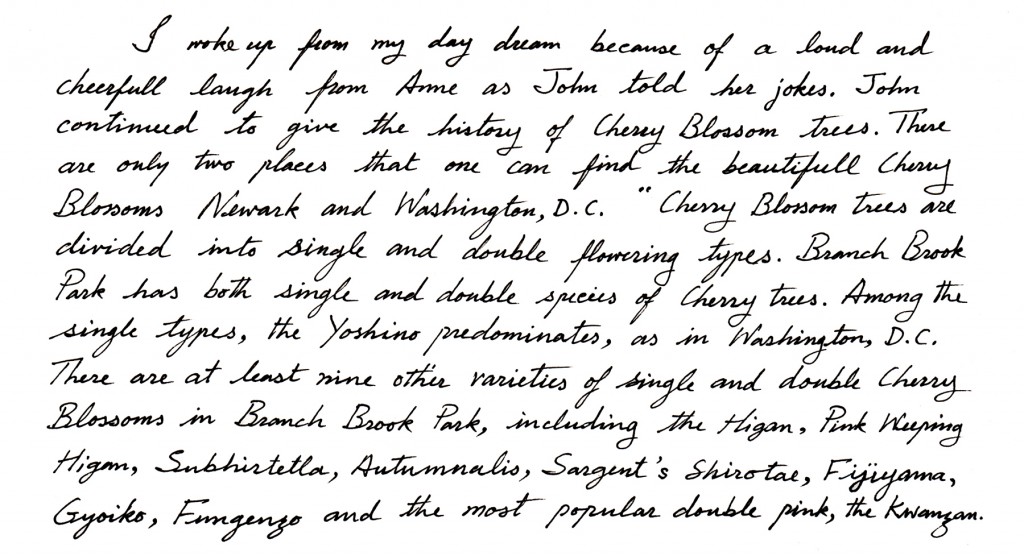 I woke up from my day dream because of a loud and
cheerfull laugh from Anne as John told her jokes. John
continued to give the history of Cherry Blossom trees. There
are only two places that one can find the beautifull Cherry
Blossoms Newark and Washington, D.C. "Cherry Blossom trees are
divided into single and double flowering types. Branch Brook
Park has both single and double species of Cherry trees. Among the
single types, the Yoshino predominates, as in Washington, D.C.
There are at least nine other varieties of single and double Cherry
Blossoms in Branch Brook Park, including the Higan, Pink Weeping
Higan, Subhirtetla, Autumnalis, Sargent's Shirotae, Fijiyama,
Gyoiko, Fungenzo and the most popular double pink, the Kwanzan.